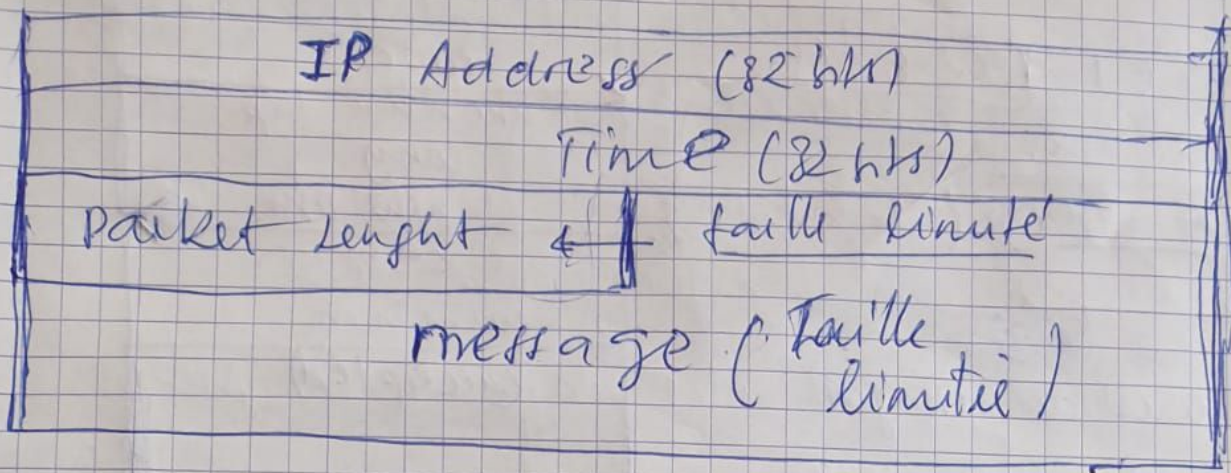 IP Address (32 bits)
Time (32 bits)
Packet Lenght ← taille limité
message (Taille
limitée)